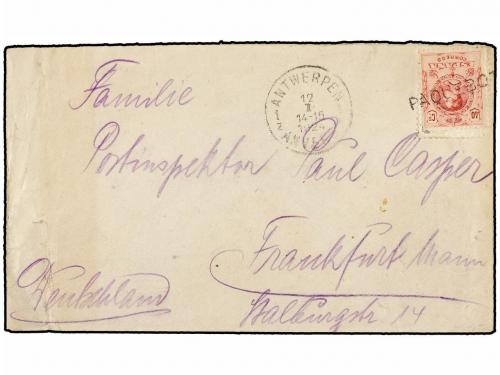 ANTWERPEN
12
II
14-15
ANVERS
PAQUEBO
CORREOS
Familie
Postinspektor Paul Casper
Frankfurt Main
Deutschland
Walburgstr 14